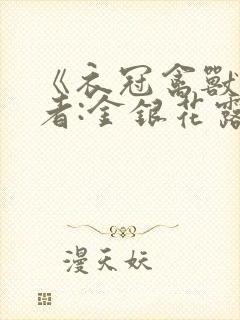 《衣冠禽獸
者:金銀花露
漫天妖